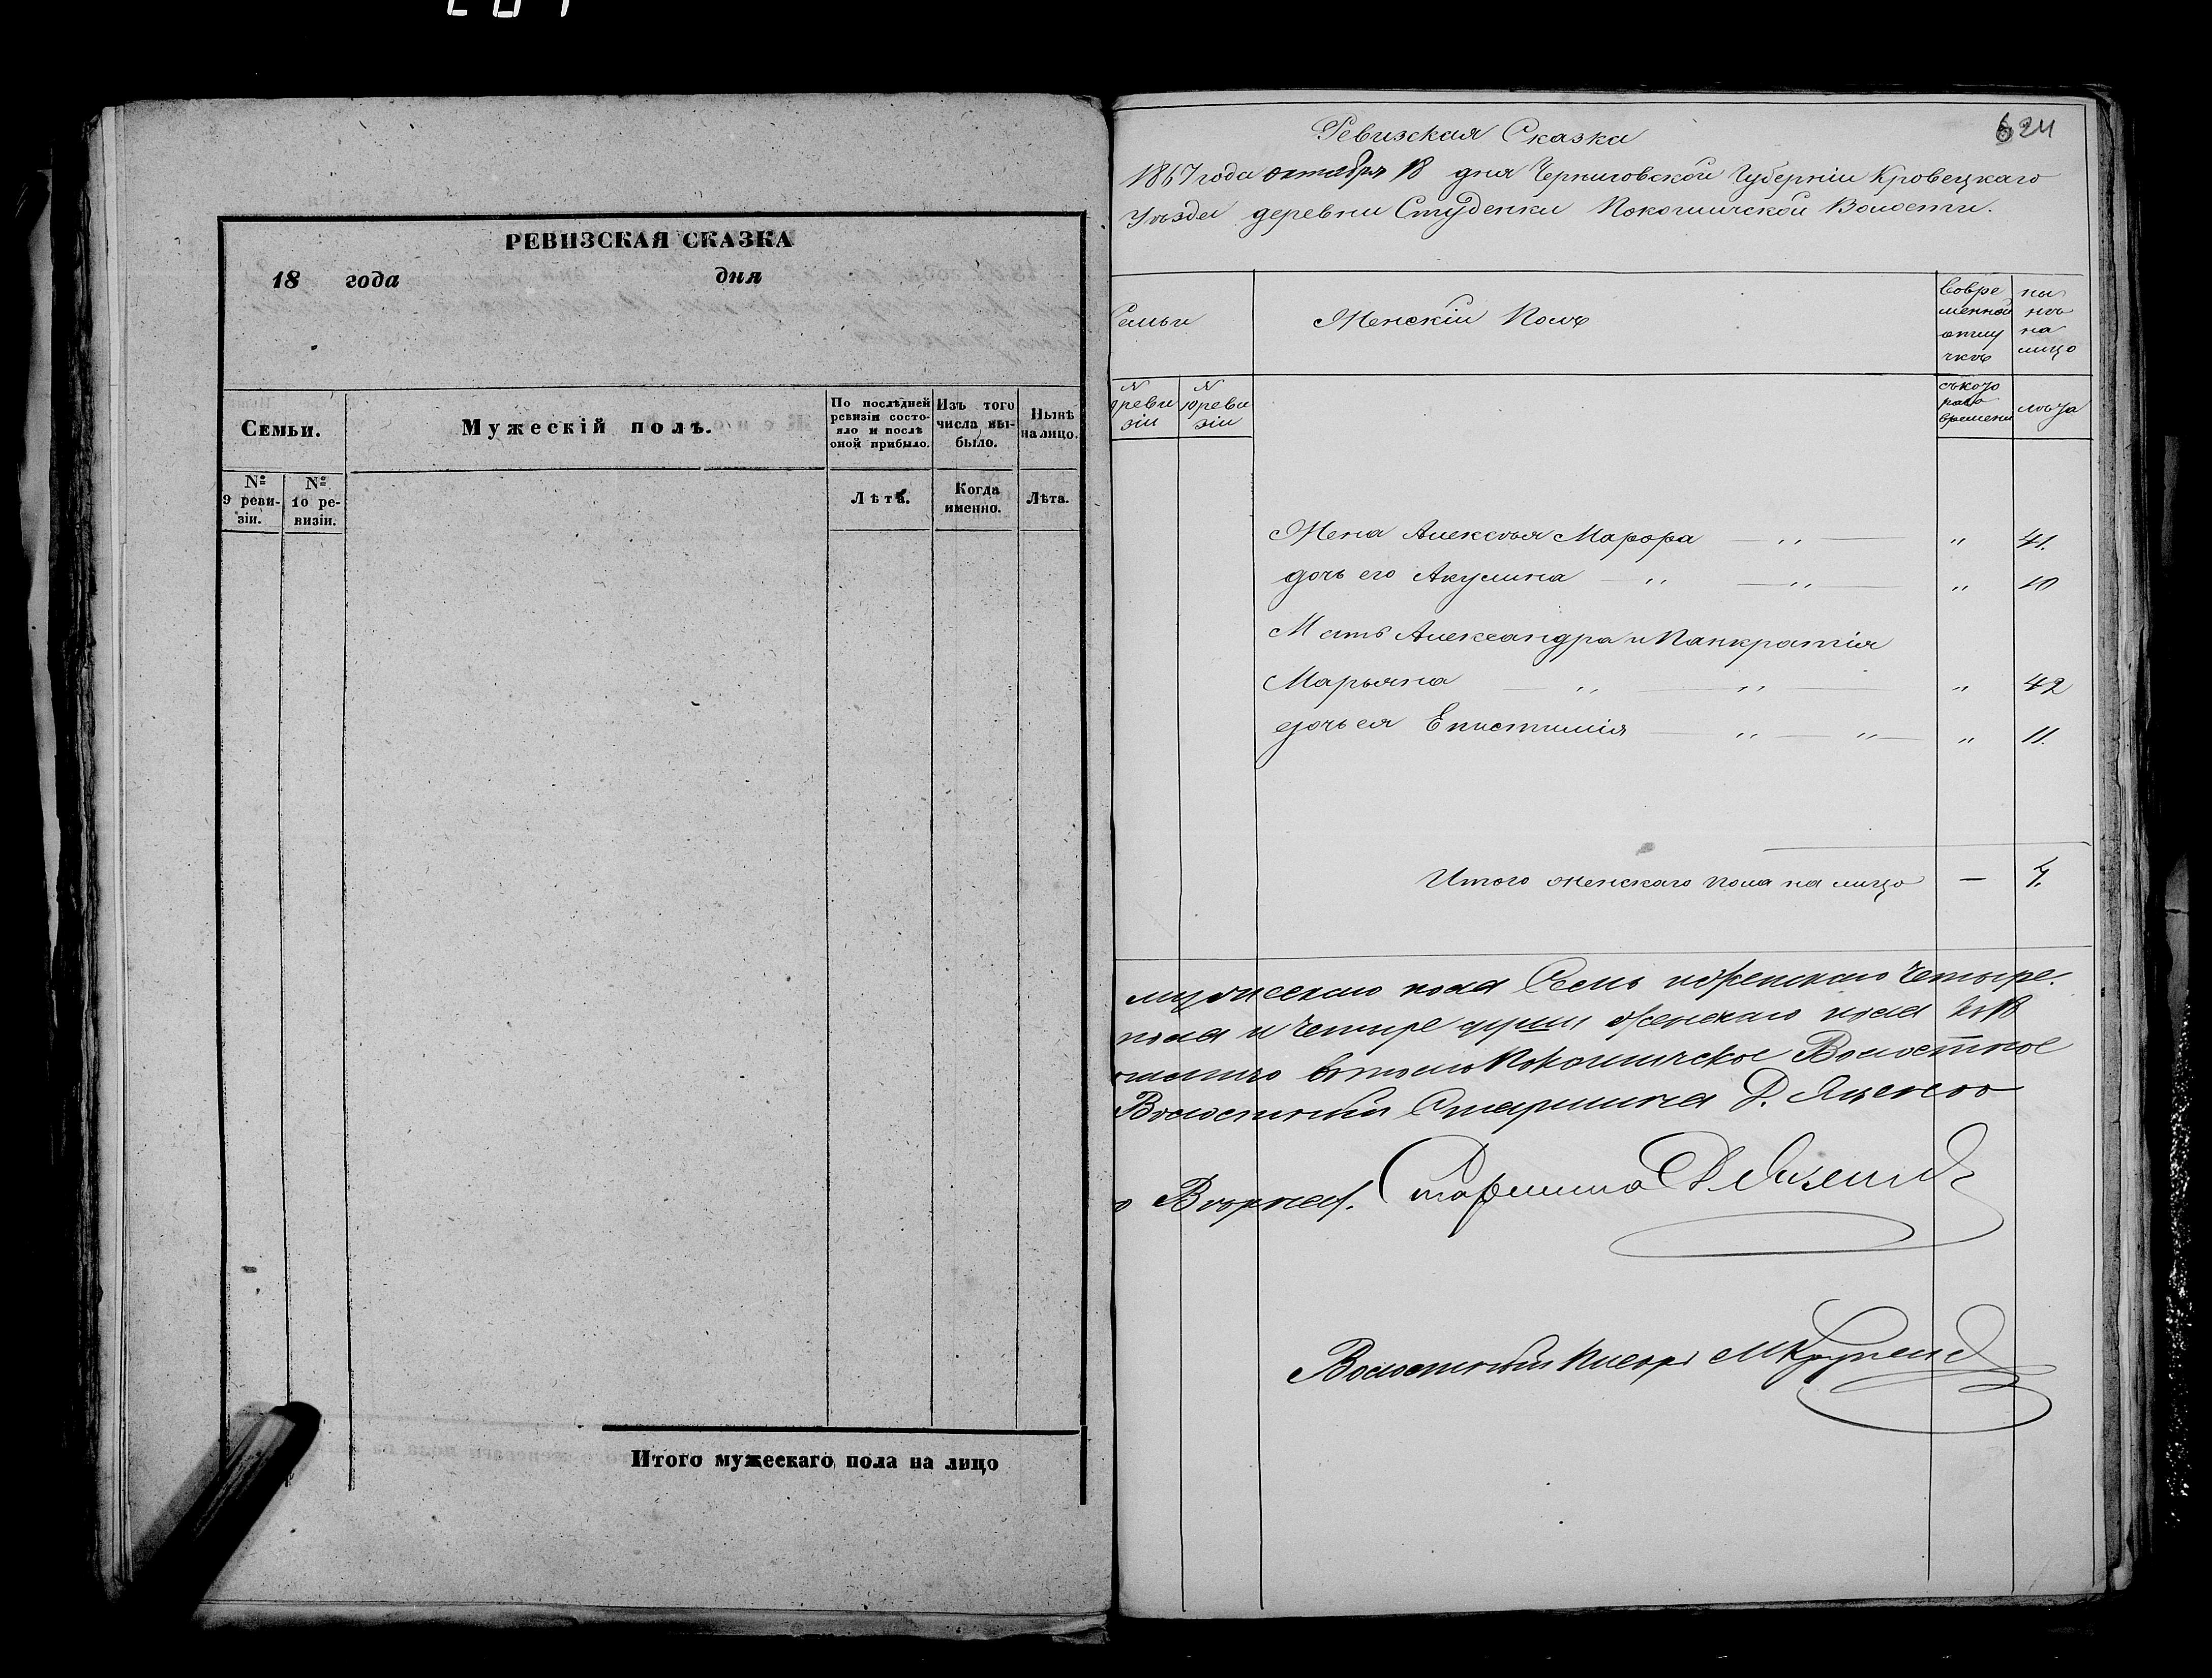 РЕВИЗСКАЯ СКАЗКА
18 года дня
Семьи.
Мужескій полъ.
По послѣдней ревизіи состо-
яло и послѣ оной прибыло.
Изъ того числа вы-
было.
Нынѣ на лицо.
№ 9 реви-
зіи.
№ 10 ре-
визіи.
Лѣта.
Когда именно.
Лѣта.
Итого мужескаго пола на лицо
624
Ревизская Сказка
1867 года октября 18 дня Черниговской Губерніи Кровецкаго
Уѣзда деревни Студенки Покошичской Волости.
Семьи
Женскій Полъ
Вовре
менной
отлу
чкѣ
ны
нѣ
на
лицо
N
ревы
зіи
N
10 ревы
зіи
съкого
ра
времени
лѣта
Жена Алексѣя Марфа — „ — „ 41.
дочь его Акулина — „ — „ — „ 10
Мать Александра и Панкратія
Марьяна — „ — „ — „ 42
дочь ея Епистимія — „ — „ — „ 11.
Итого женскаго пола на лицо — 4.
мужескаго пола Семь и женскаго Четыре.
пола и Четыре души женскаго пола
въ томъ Покошичское Волостное
Волостный Старшина Д. Яценко
Вѣрна. Старшина Д Яценко
Волостный Писарь М